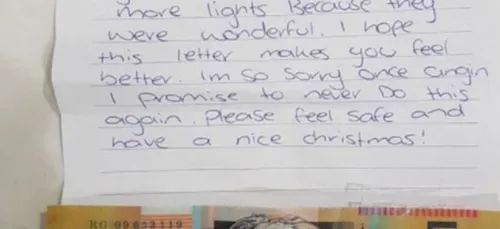 more lights Because they
were wonderful. I hope
this letter makes you feel
better. Im so sorry once angin
I promise to never Do this
again. Please feel safe and
have a nice christmas!
RG 09653119